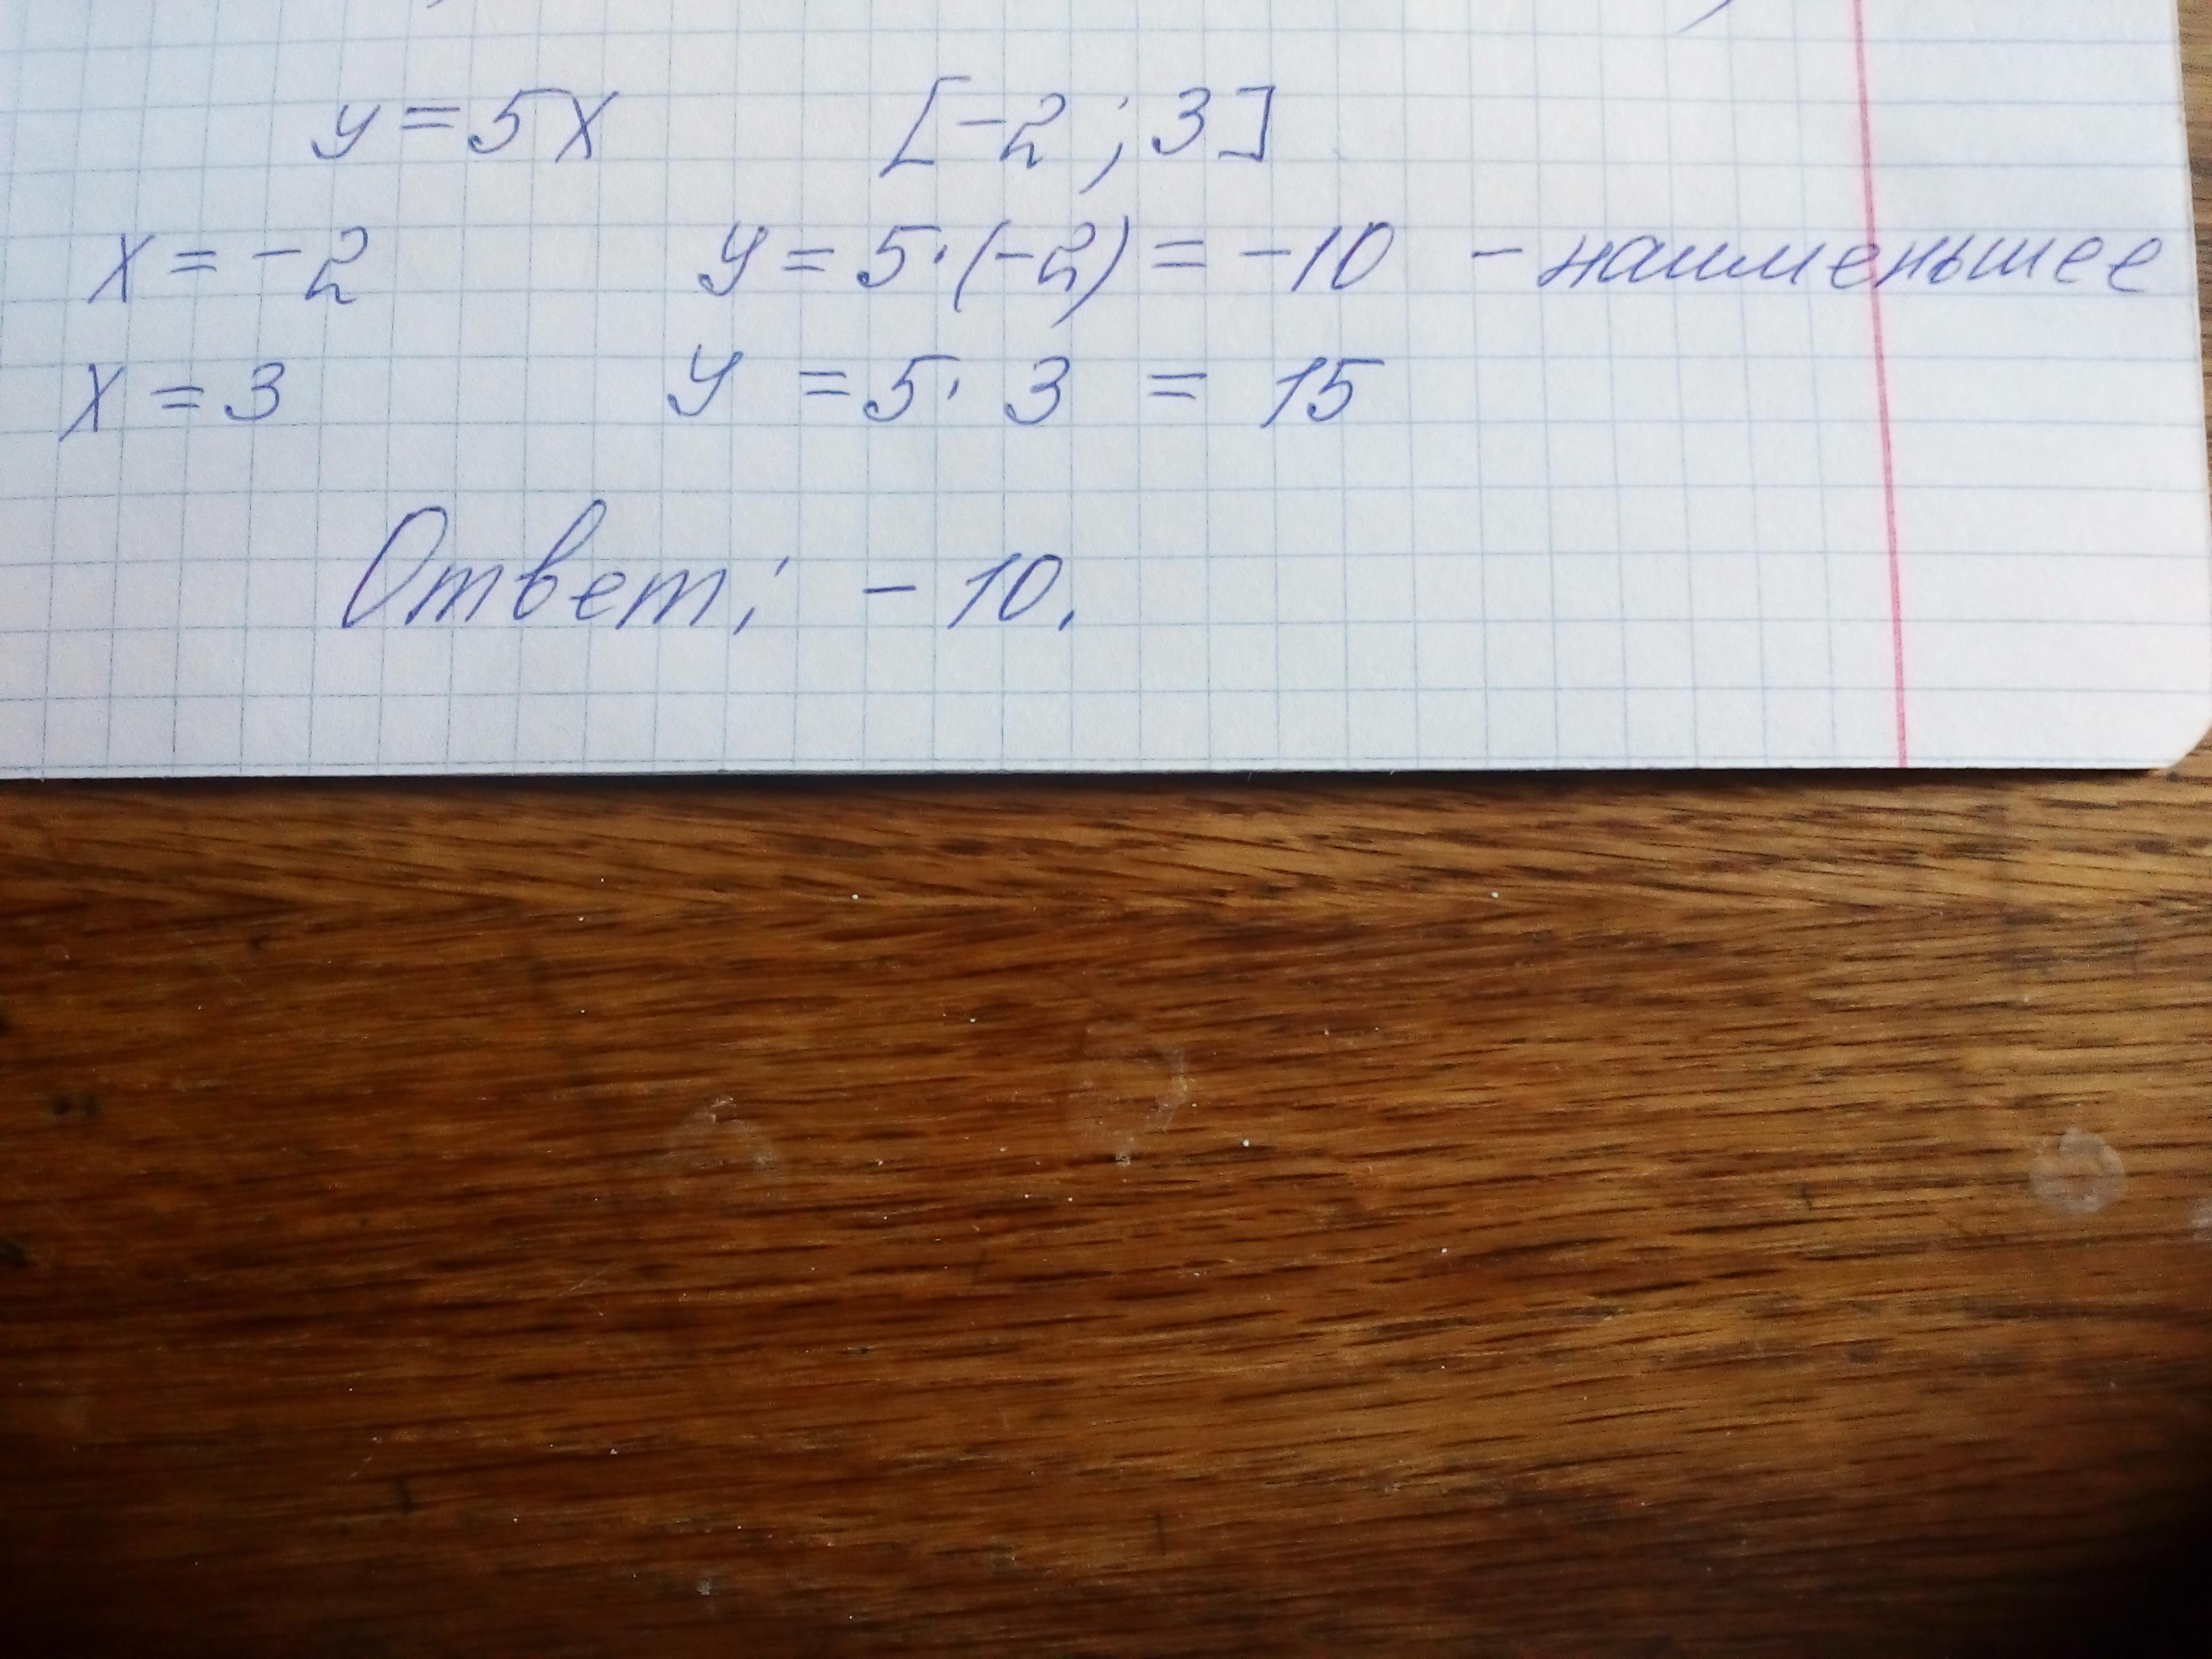 y = 5x [-2; 3]
x = -2 y = 5·(-2) = -10 - наименьшее
x = 3 y = 5· 3 = 15
Ответ: - 10.